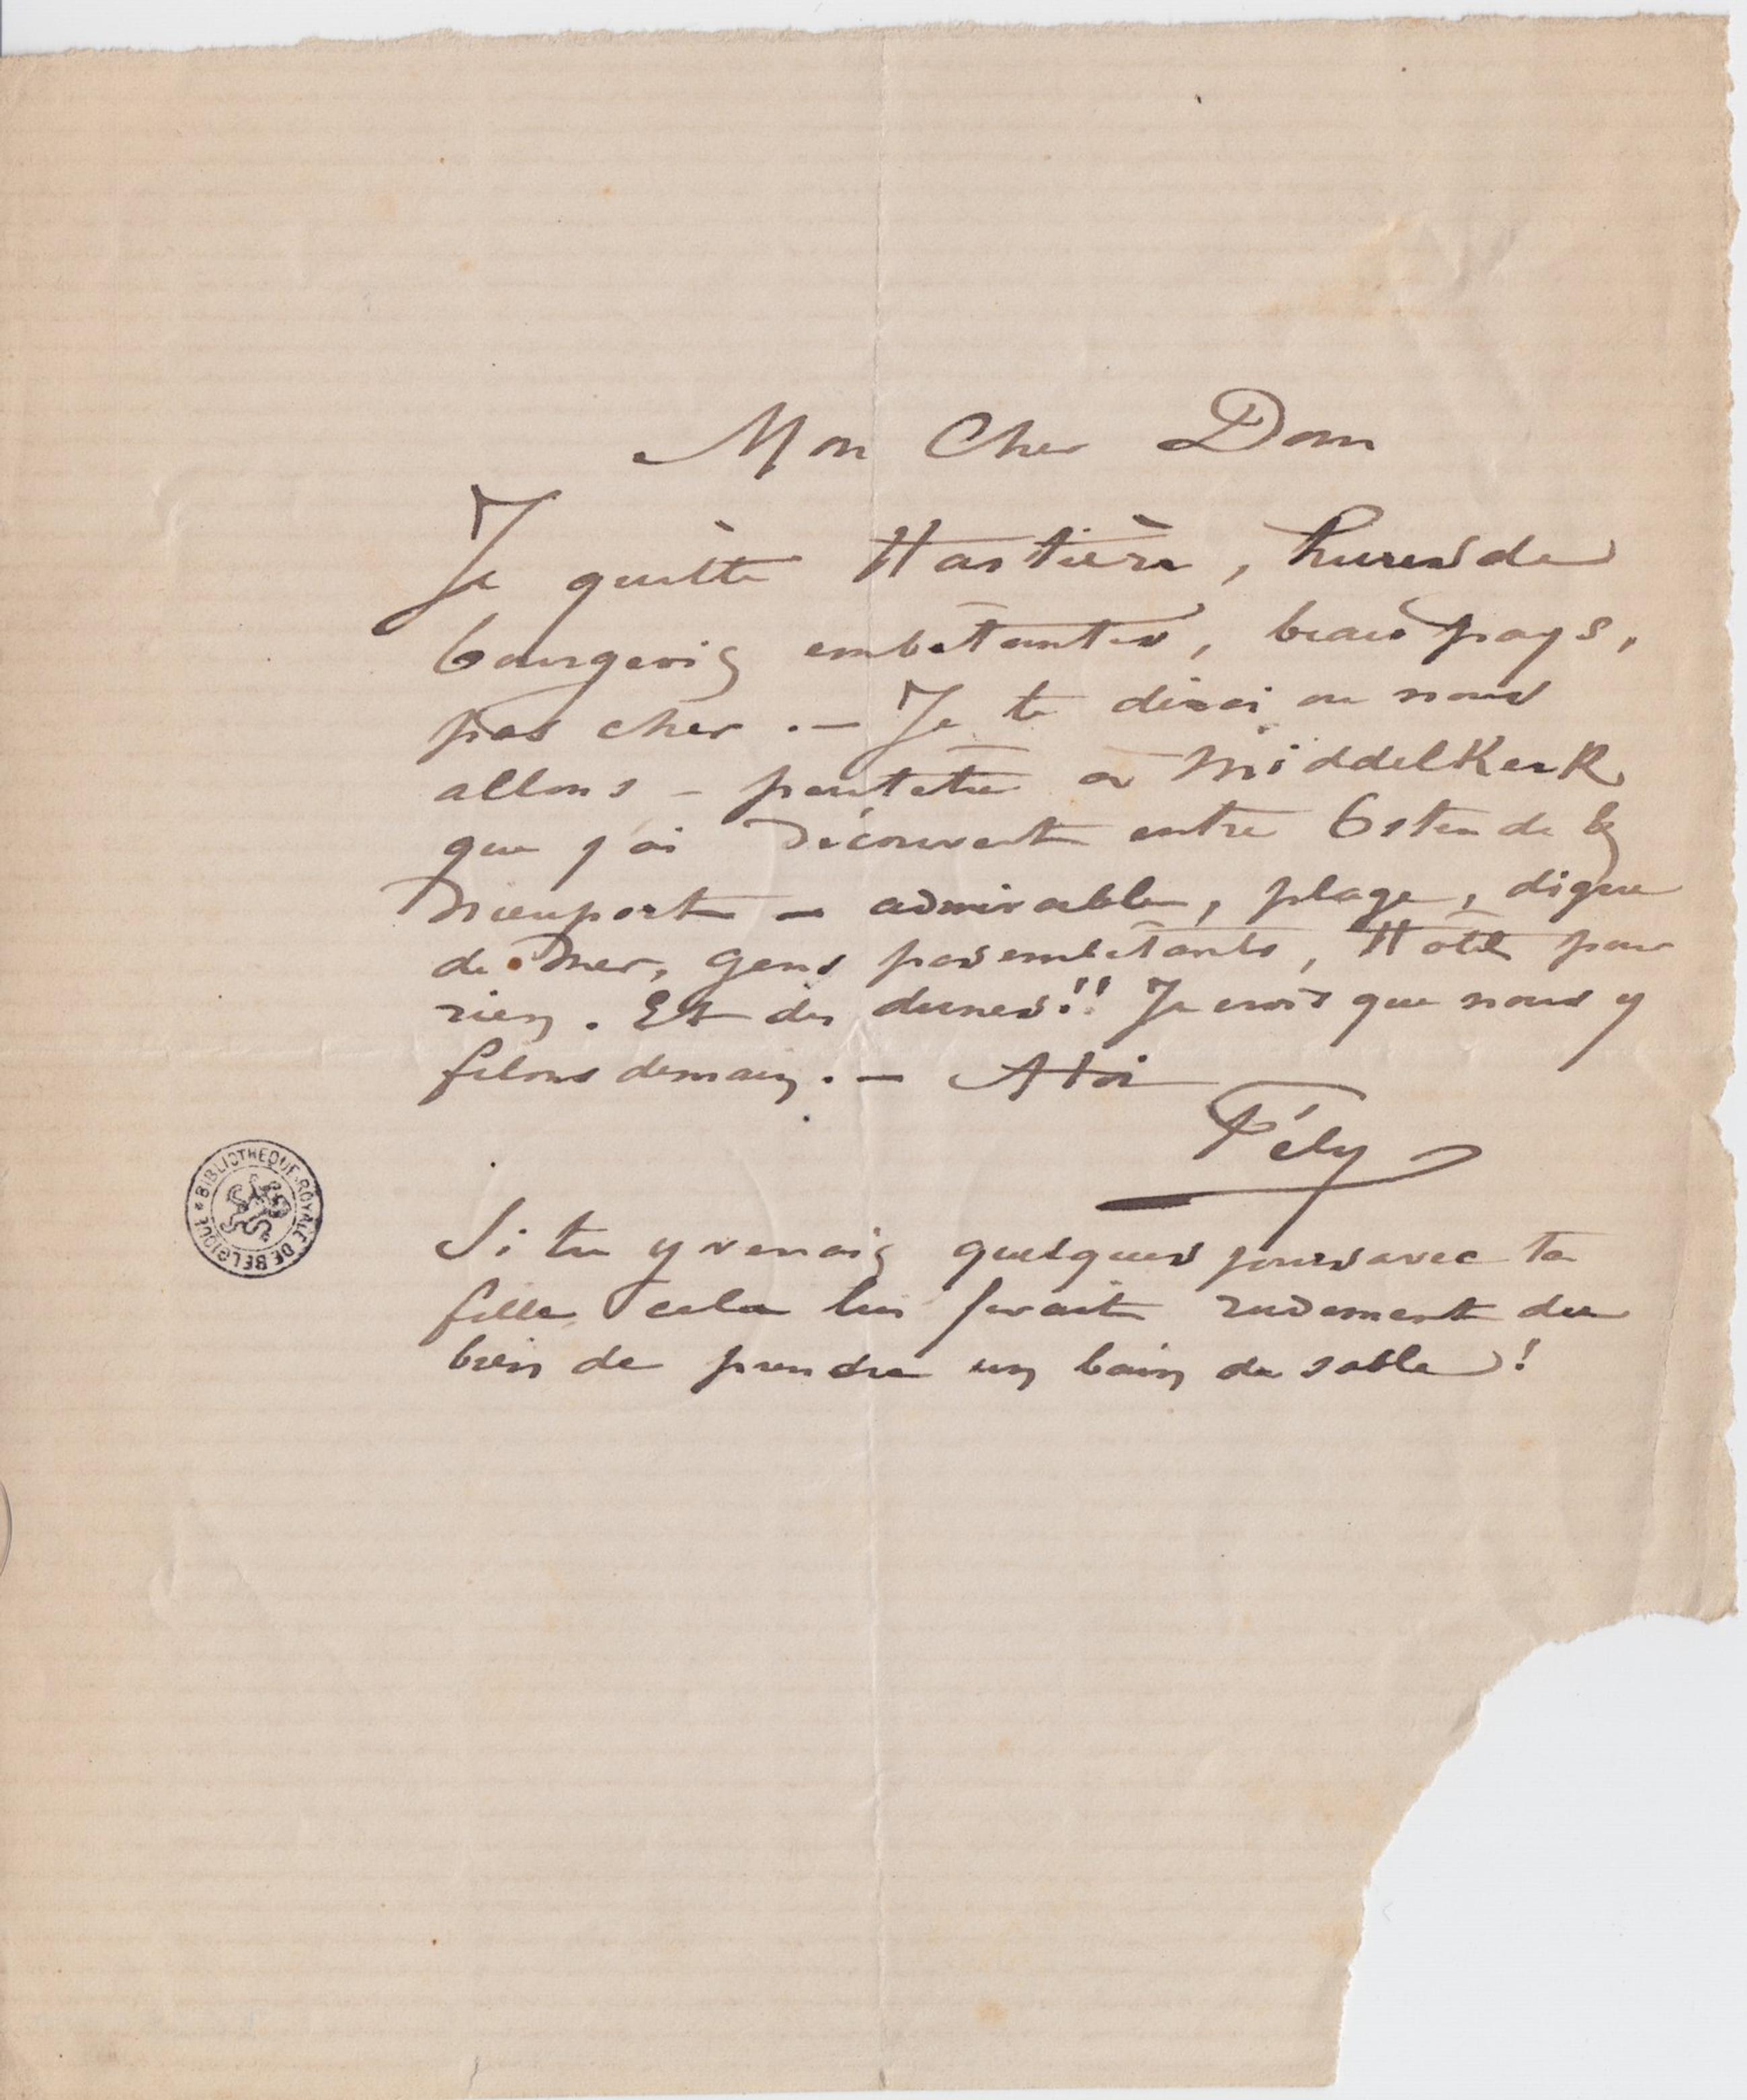 Mon Cher Dom
Je quitte Hastière, hures de
bourgeois embêtantes, beau pays,
pas cher. – Je te dirai ou nous
allons – peutetre a MiddelKerK
que j'ai découvert entre Ostende &
Nieuport – admirable, plage, digue
de Mer, gens pas embêtants, Hôtel pour
rien. Et des dunes!! Je crois que nous y
filons demain. – A toi
Fély
BIBLIOTHEQUE ROYALE DE BELGIQUE
Si tu y venais quelques jours avec ta
fille cela lui ferait rudement du
bien de prendre un bain de sable!